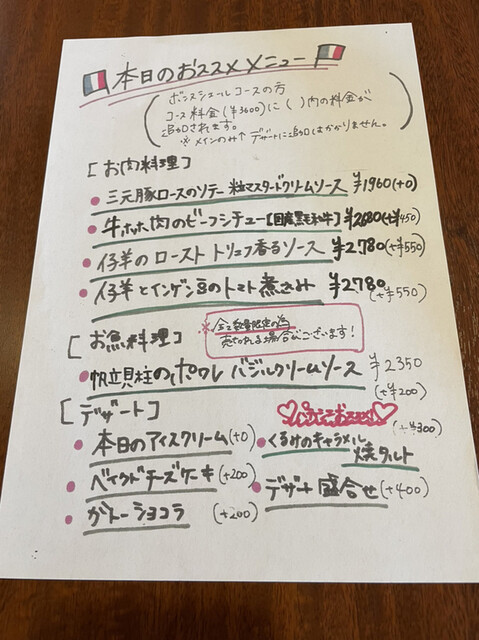 本日のおススメメニュー
ボンヌシェールコースの方
コース料金(¥3600)に( )内の料金が
追加されます。
※メインのみ↑ デザートに追加はかかりません。
[お肉料理]
・三元豚ロースのソテー 粒マスタードクリームソース ¥1960(+0)
・牛ホホ肉のビーフシチュー【国産黒毛和牛】 ¥2680(+¥450)
・仔羊のロースト トリュフ香るソース ¥2.780(+¥550)
・仔羊とインゲン豆のトマト煮込み ¥2.780
(+¥550)
[お魚料理]
※全て数量限定の為
売り切れる場合がございます!
・帆立貝柱のポワレ バジルクリームソース ¥2350
(+¥200)
[デザート]
・本日のアイスクリーム(+0)
・ベイクドチーズケーキ(+200)
・ガトーショコラ (+200)
(+¥300)
・くるみのキャラメル
焼タルト
・デザート盛合せ(+400)